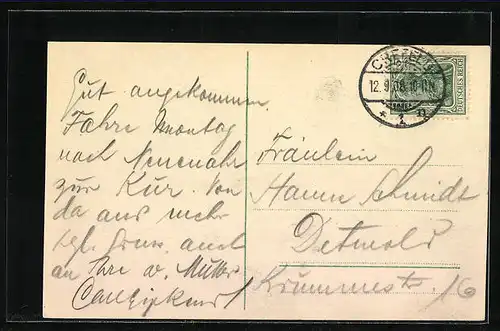 Gut angekommen.
Fahre Montag
nach Neuenahr
zur Kur. Von
da aus mehr
hzgl. Gruss, auch
an Ihre w. Mutter
CREFELD
12.9.08.
* 1 n
DEUTSCHES REICH
Fräulein
Hanna Schmidt
Detmold
Krummestr. 16